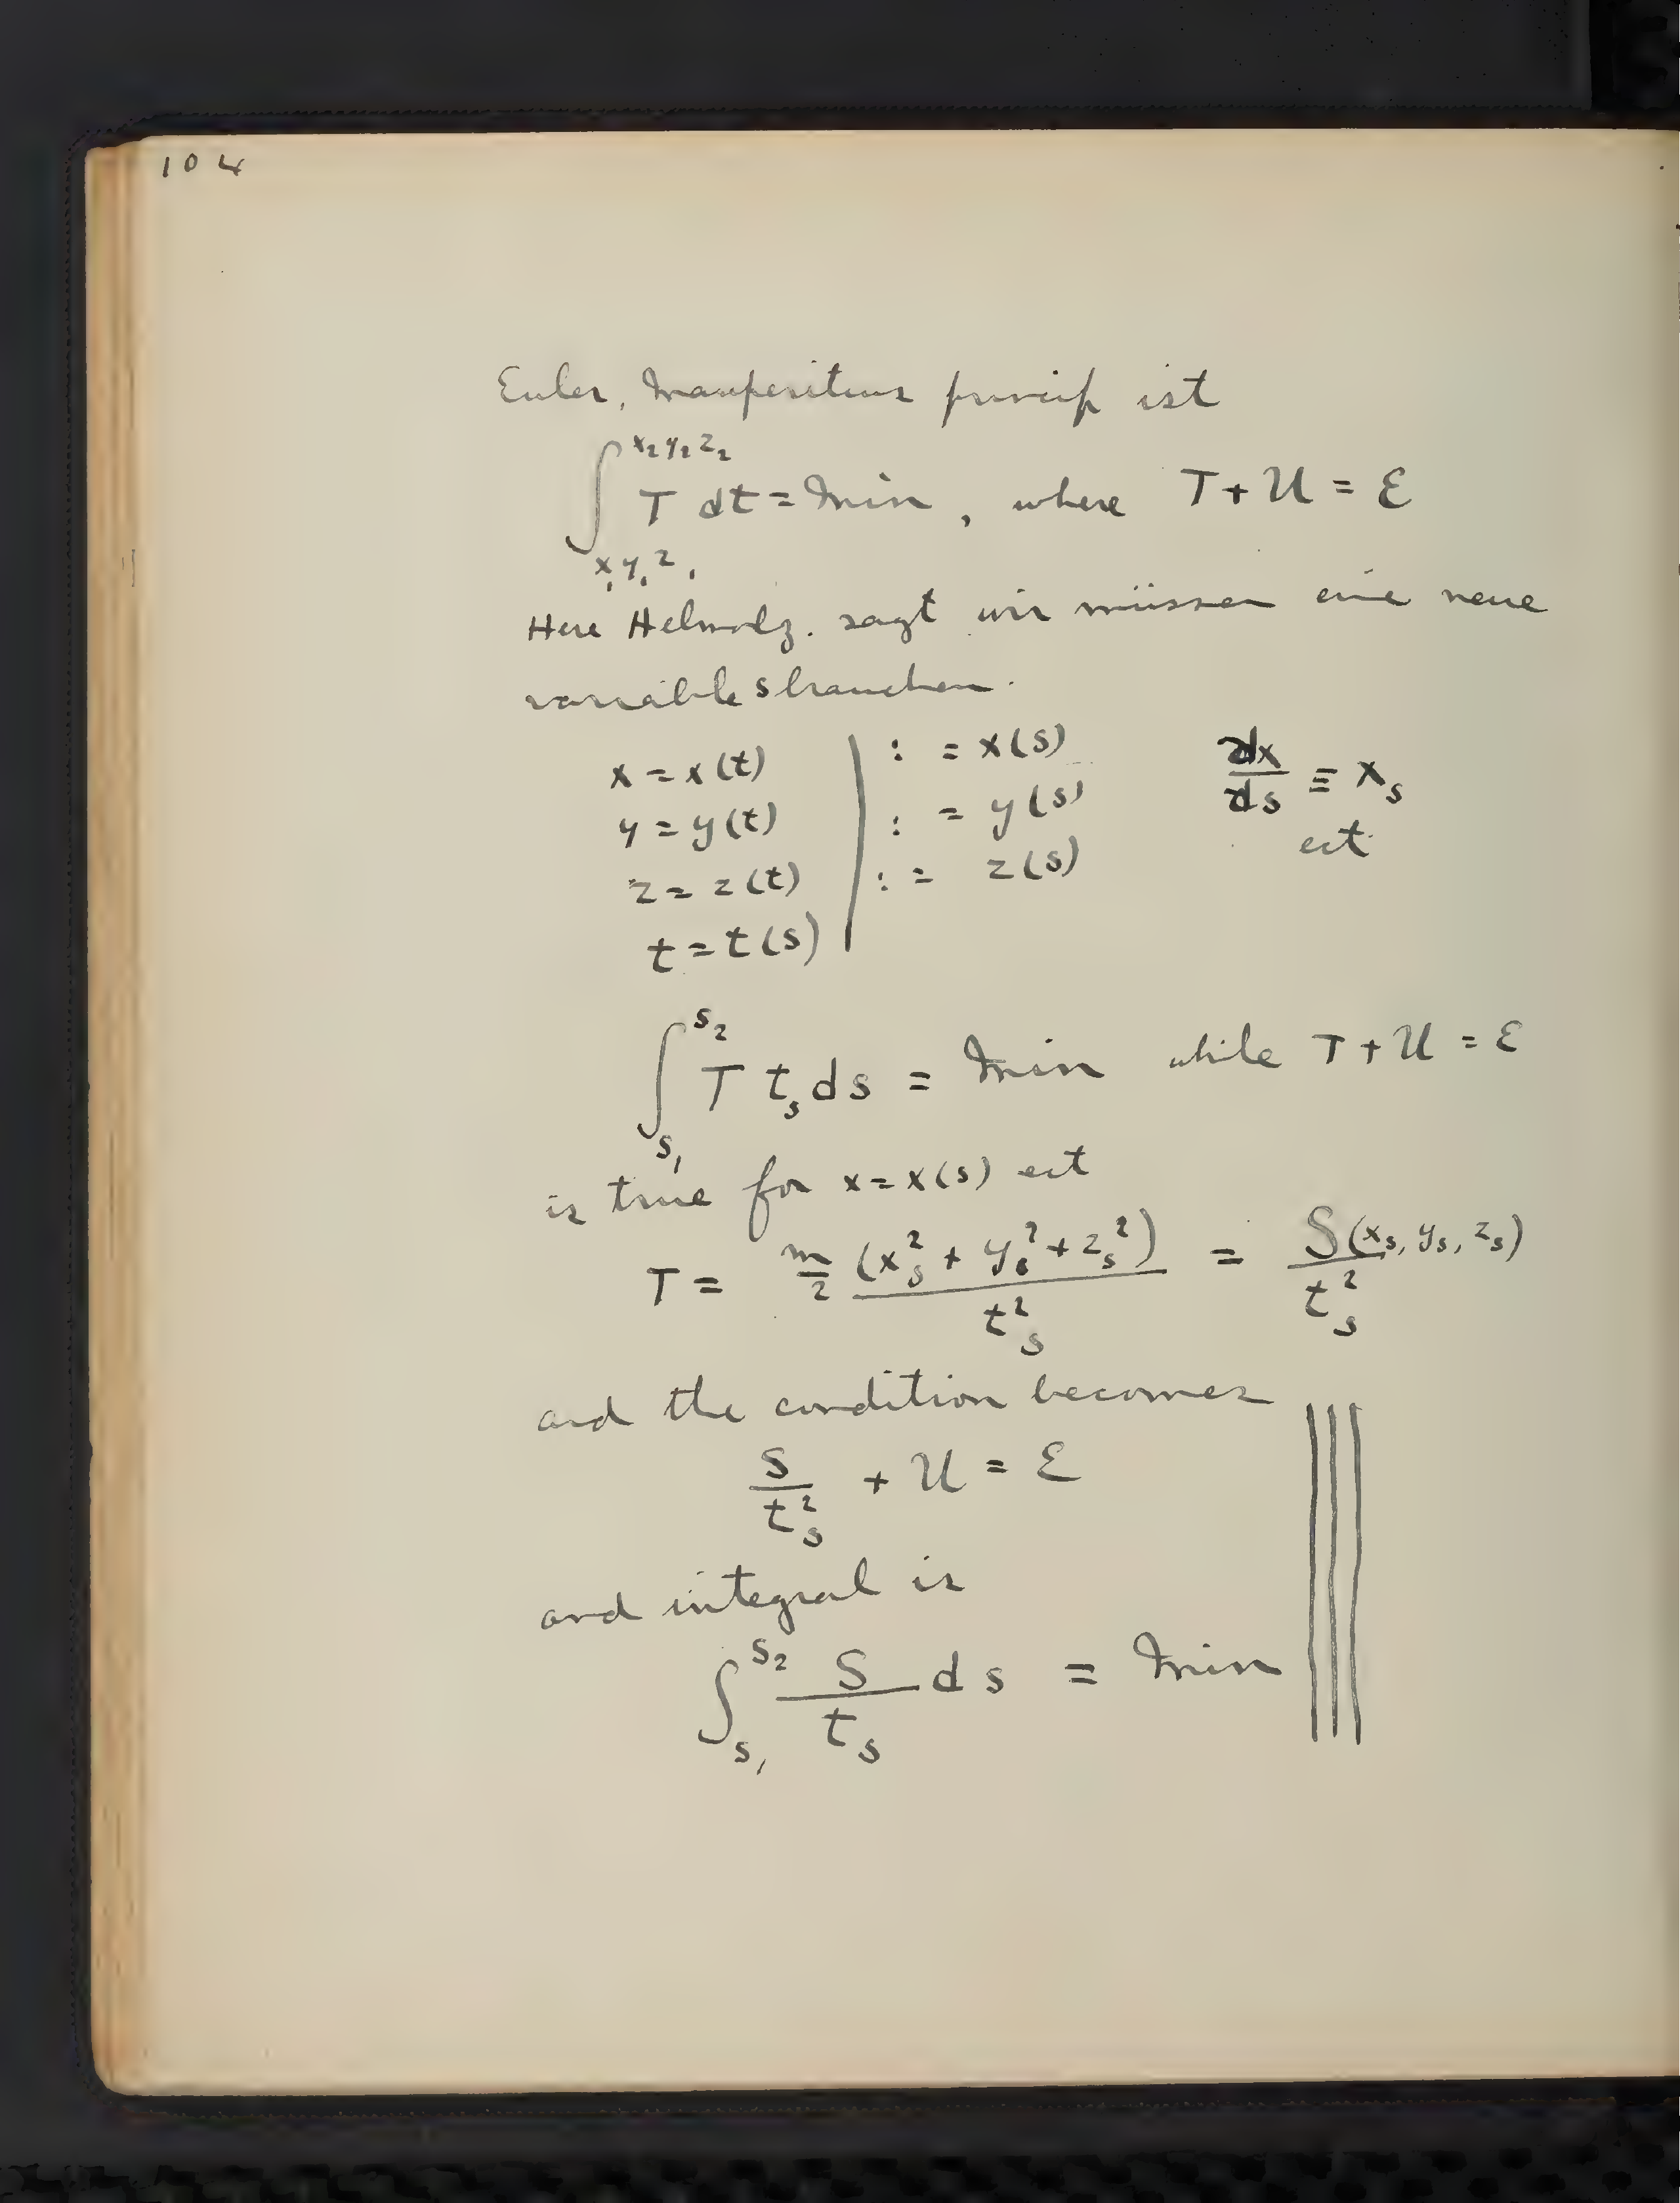 104
Euler, Maupertius princip ist
∫_{x₁y₁z₁}^{x₂y₂z₂} T dt = Min, where T + U = E
Here Helmolz. sagt wir müssen eine neue
variable s brauchen.
x = x(t) | : = x(s) dx/ds ≡ x_s
y = y(t) | : = y(s) ect
z = z(t) | : = z(s)
t = t(s)
∫_{s₁}^{s₂} T t_s ds = Min while T + U = E
is true for x = x(s) ect
T = m/2 (x_s² + y_s² + z_s²)/t_s² = S(x_s, y_s, z_s)/t_s²
and the condition becomes
S/t_s² + U = E
and integral is
∫_{s₁}^{s₂} S/t_s ds = Min